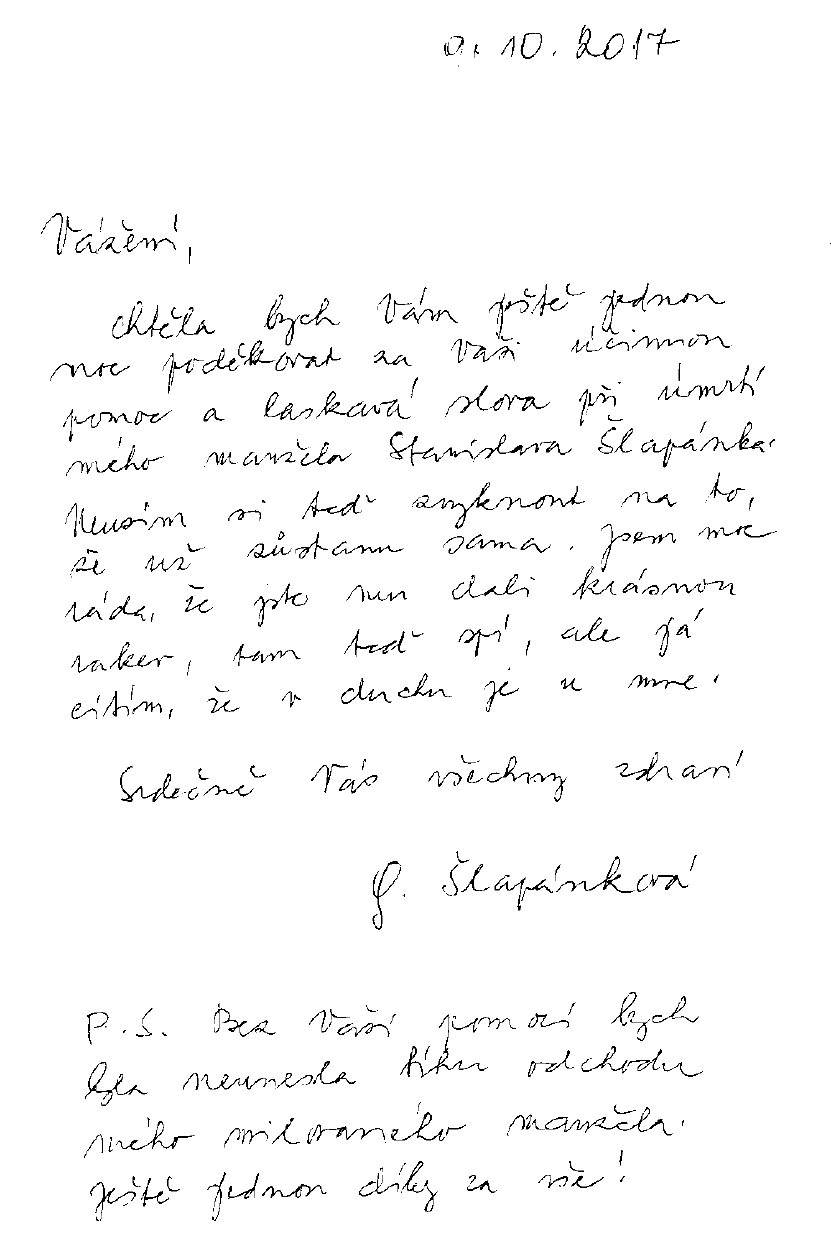 9. 10. 2017
Vážení,
chtěla bych Vám ještě jednou
moc poděkovat za Vaši účinnou
pomoc a laskavá slova při úmrtí
mého manžela Stanislava Šlapánka.
Musím si teď zvyknout na to,
že už zůstanu sama. Jsem moc
ráda, že jste mu dali krásnou
rakev, tam teď spí, ale já
cítím, že v duchu je u mne.
Srdečně Vás všechny zdraví
J. Šlapánková
P.S. Bez Vaší pomoci bych
byla neunesla tíhu odchodu
mého milovaného manžela.
Ještě jednou díky za vše!